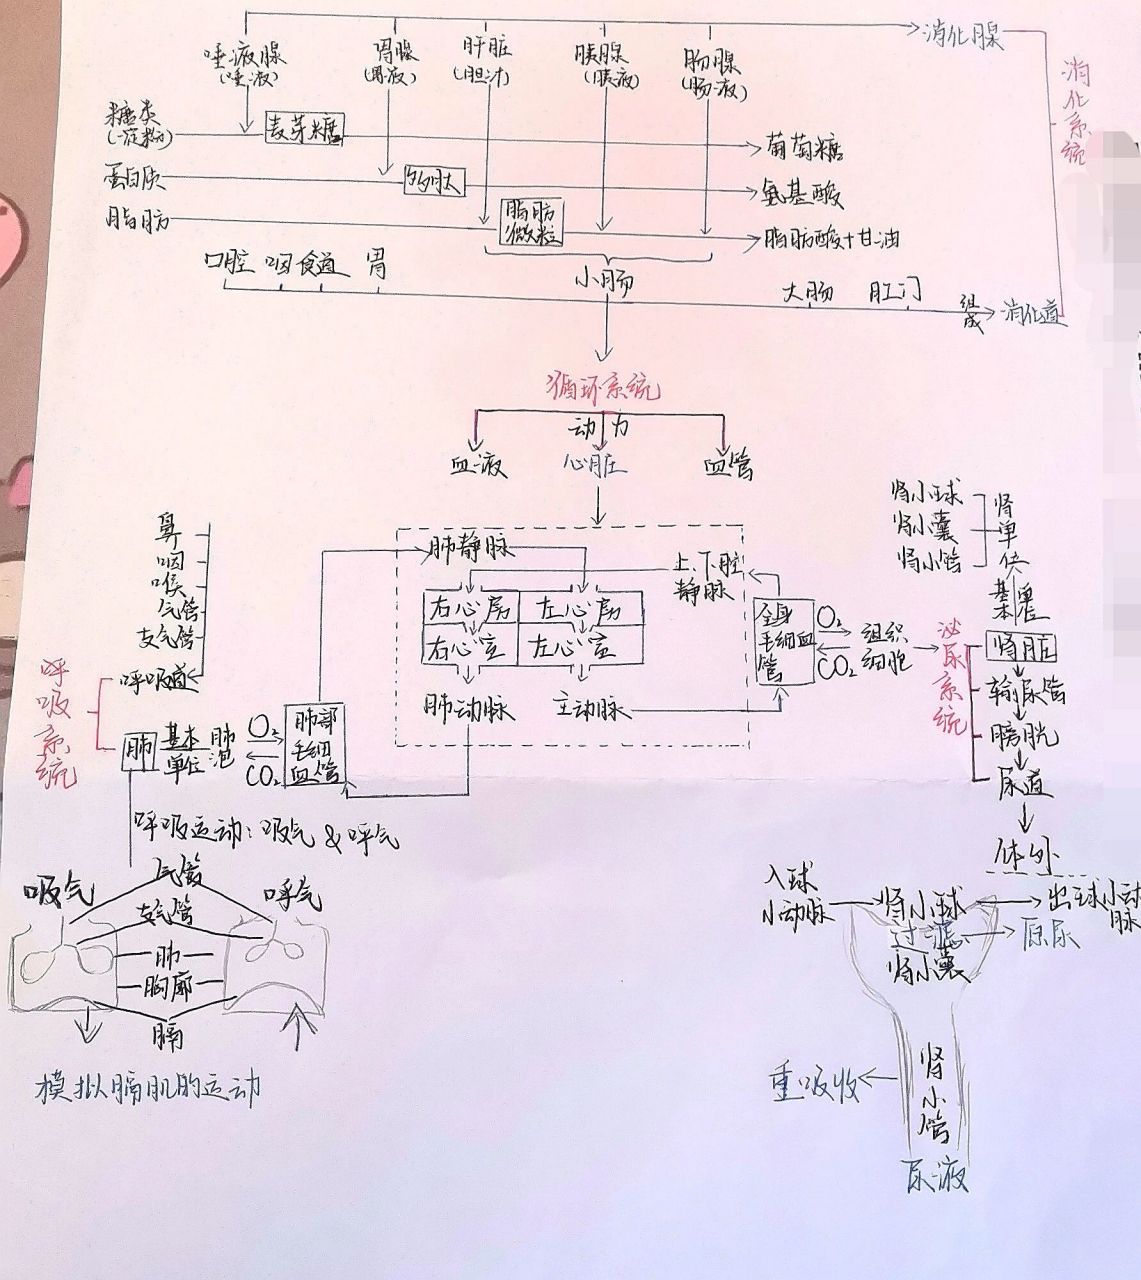 消化腺
唾液腺
(唾液)
胃腺
(胃液)
肝脏
(胆汁)
胰腺
(胰液)
肠腺
(肠液)
消化系统
糖类
(淀粉)
麦芽糖
葡萄糖
蛋白质
多肽
氨基酸
脂肪
脂肪
微粒
脂肪酸+甘油
口腔 咽 食道 胃
小肠
大肠 肛门
组成
消化道
循环系统
动力
血液 心脏 血管
肾小球
肾小囊
肾小管
肾单位
基本单位
鼻
咽
喉
气管
支气管
呼吸道
呼吸系统
肺
基本
单位
肺泡
O₂
CO₂
肺部
毛细
血管
肺静脉
上、下腔
静脉
右心房 左心房
右心室 左心室
肺动脉 主动脉
全身
毛细血
管
O₂
CO₂
组织
细胞
泌尿系统
肾脏
输尿管
膀胱
尿道
体外
呼吸运动：吸气 & 呼气
吸气
呼气
气管
支气管
肺
胸廓
膈
模拟膈肌的运动
入球
小动脉
肾小球
出球小动
脉
过滤
原尿
肾小囊
重吸收
肾小管
尿液